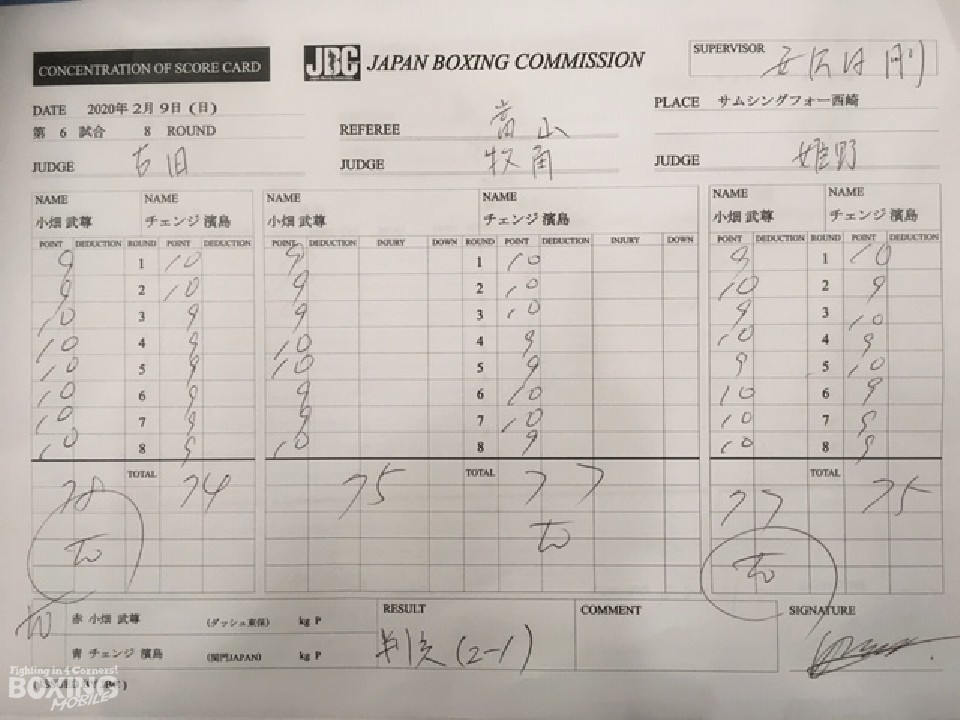 CONCENTRATION OF SCORE CARD
JBC JAPAN BOXING COMMISSION
SUPERVISOR
DATE 2020年 2月 9日 (日)
PLACE サムシングフォー西崎
第 6 試合 8 ROUND
REFEREE 高山
JUDGE 古田
JUDGE 牧角
JUDGE 姫野
NAME NAME NAME NAME NAME NAME
小畑 武尊 チェンジ 濱島 小畑 武尊 チェンジ 濱島 小畑 武尊 チェンジ 濱島
POINT DEDUCTION ROUND POINT DEDUCTION POINT DEDUCTION INJURY DOWN ROUND POINT DEDUCTION INJURY DOWN POINT DEDUCTION ROUND POINT DEDUCTION
9 1 10 9 1 10 9 1 10
9 2 10 9 2 10 10 2 9
10 3 9 9 3 10 9 3 10
10 4 9 10 4 9 10 4 9
10 5 9 10 5 9 9 5 10
10 6 9 9 6 10 10 6 9
10 7 9 9 7 10 10 7 9
10 8 9 10 8 9 10 8 9
TOTAL TOTAL TOTAL
78 74 75 77 77 75
赤 小畑 武尊 (ダッシュ東保) kg P
RESULT
COMMENT
SIGNATURE
判定 (2-1)
青 チェンジ 濱島 (関門JAPAN) kg P
Fighting in 4 Corners!
BOXING
MOBILE